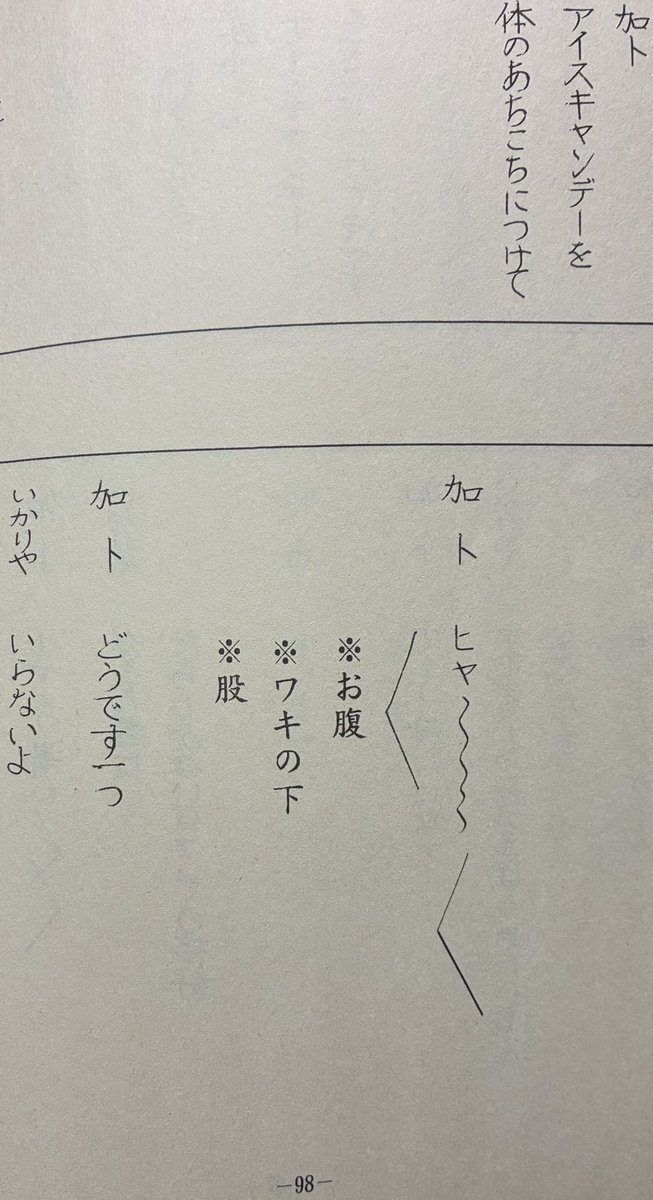 加ト
アイスキャンデーを
体のあちこちにつけて
加ト ヒヤ〳〵〳〵〳〵〳〵
※お腹
※ワキの下
※股
加ト どうです一つ
いかりや いらないよ
—98—